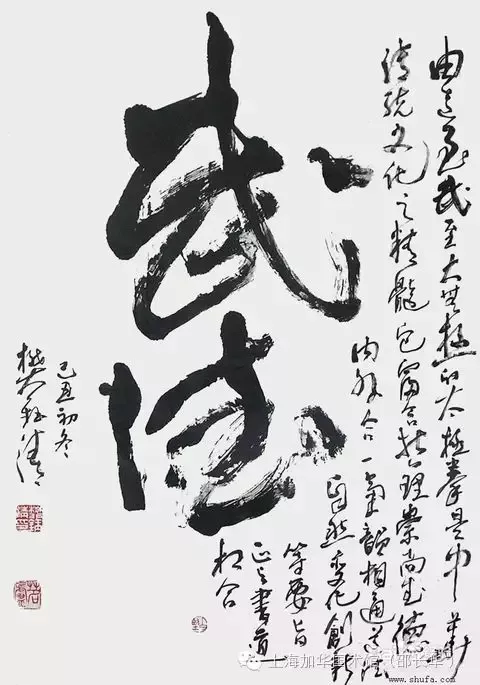 武德
由武至大無極的太極拳是中華
傳統文化之精髓它富含哲理崇尚武德
內外合一氣韻相通道法
自然變化創新
等要旨
正與書道
相合
己丑初冬
上海加华美术馆（邵长华）
www.shufa.com